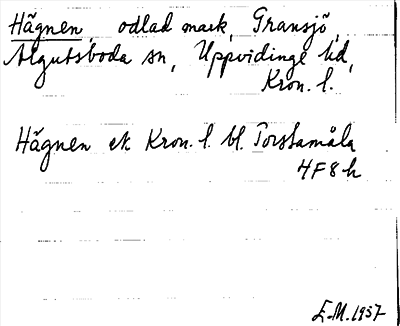 Hägnen, odlad mark, Gransjö,
Algutsboda sn, Uppvidinge hd,
Kron. l.
Hägnen ek Kron. l. bl. Torsamåla
4F8h
E.M. 1957